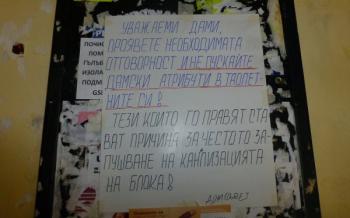 УВАЖАЕМИ ДАМИ,
ПРОЯВЕТЕ НЕОБХОДИМАТА
ОТГОВОРНОСТ И НЕ ПУСКАЙТЕ
ДАМСКИ АТРИБУТИ В ТАОЛЕТ-
НИТЕ СИ!
ТЕЗИ КОИТО ГО ПРАВЯТ СТА
ВАТ ПРИЧИНА ЗА ЧЕСТОТО ЗА-
ПУШВАНЕ НА КАНЛИЗАЦИЯТА
НА БЛОКА!
ПОЧИС
ПОМ
ГЪЛЪБ
ИЗОЛА
ПОДМ
GSM